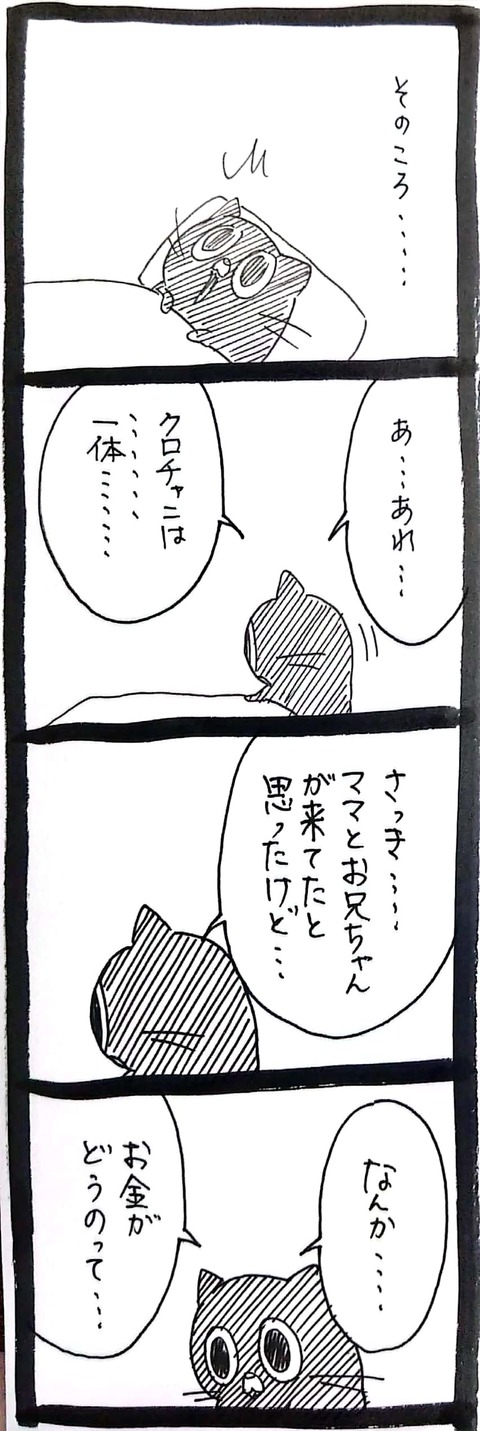 そのころ・・・・・
あ・・・あれ・・・
クロチャンは
・・・・・・
一体・・・・・・・
さっき・・・・
ママとお兄ちゃん
が来てたと
思ったけど・・・
なんか・・・・
お金が
どうのって・・・